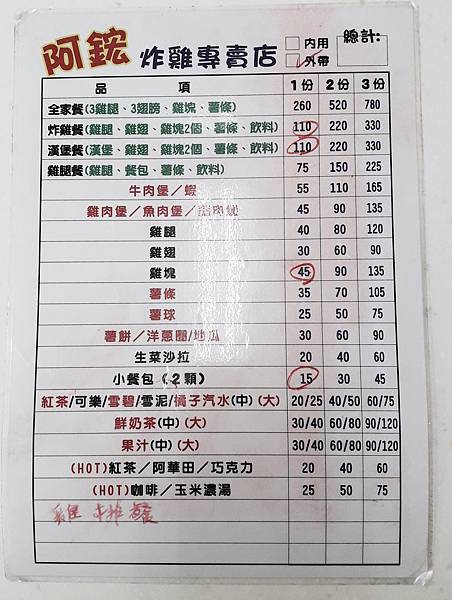 阿鋐 炸雞專賣店
內用 總計:
外帶
品 項 1份 2份 3份
全家餐(3雞腿、3翅膀、雞塊、薯條) 260 520 780
炸雞餐(雞腿、雞翅、雞塊2個、薯條、飲料) 110 220 330
漢堡餐(漢堡、雞翅、雞塊2個、薯條、飲料) 110 220 330
雞腿餐(雞腿、餐包、薯條、飲料) 75 150 225
牛肉堡/蝦 55 110 165
雞肉堡/魚肉堡/ 45 90 135
雞腿 40 80 120
雞翅 30 60 90
雞塊 45 90 135
薯條 35 70 105
薯球 25 50 75
薯餅/洋蔥圈/地瓜 30 60 90
生菜沙拉 20 40 60
小餐包(2顆) 15 30 45
紅茶/可樂/雪碧/雪泥/橘子汽水(中)(大) 20/25 40/50 60/75
鮮奶茶(中)(大) 30/40 60/80 90/120
果汁(中)(大) 30/40 60/80 90/120
(HOT)紅茶/阿華田/巧克力 20 40 60
(HOT)咖啡/玉米濃湯 25 50 75
雞排